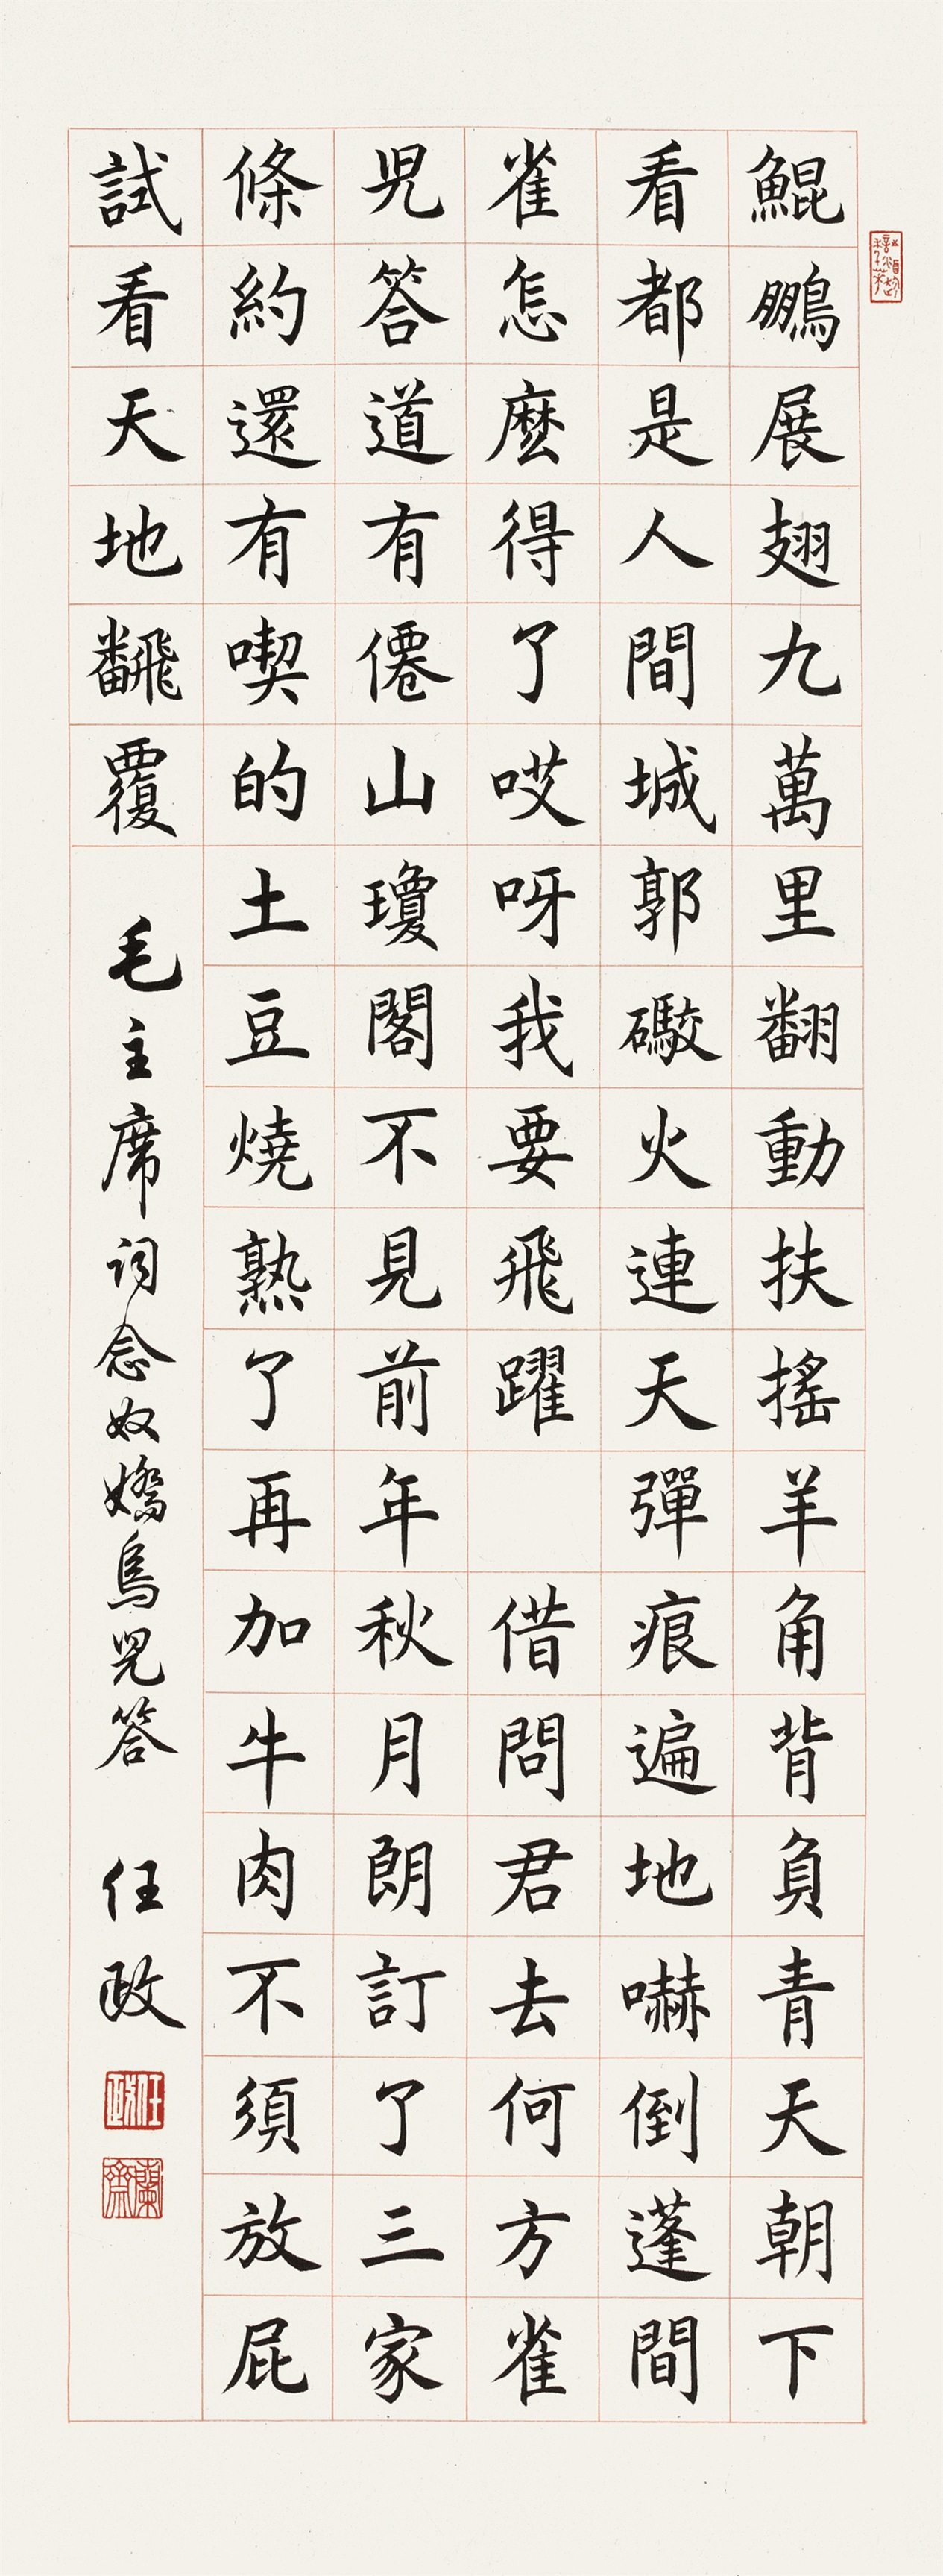 鯤鵬展翅九萬里翻動扶搖羊角背負青天朝下
看都是人間城郭礮火連天彈痕遍地嚇倒蓬間
雀怎麼得了哎呀我要飛躍 借問君去何方雀
兒答道有僊山瓊閣不見前年秋月朗訂了三家
條約還有喫的土豆燒熟了再加牛肉不須放屁
試看天地飜覆 毛主席詞念奴嬌鳥兒答 任政
任政
蘭齋